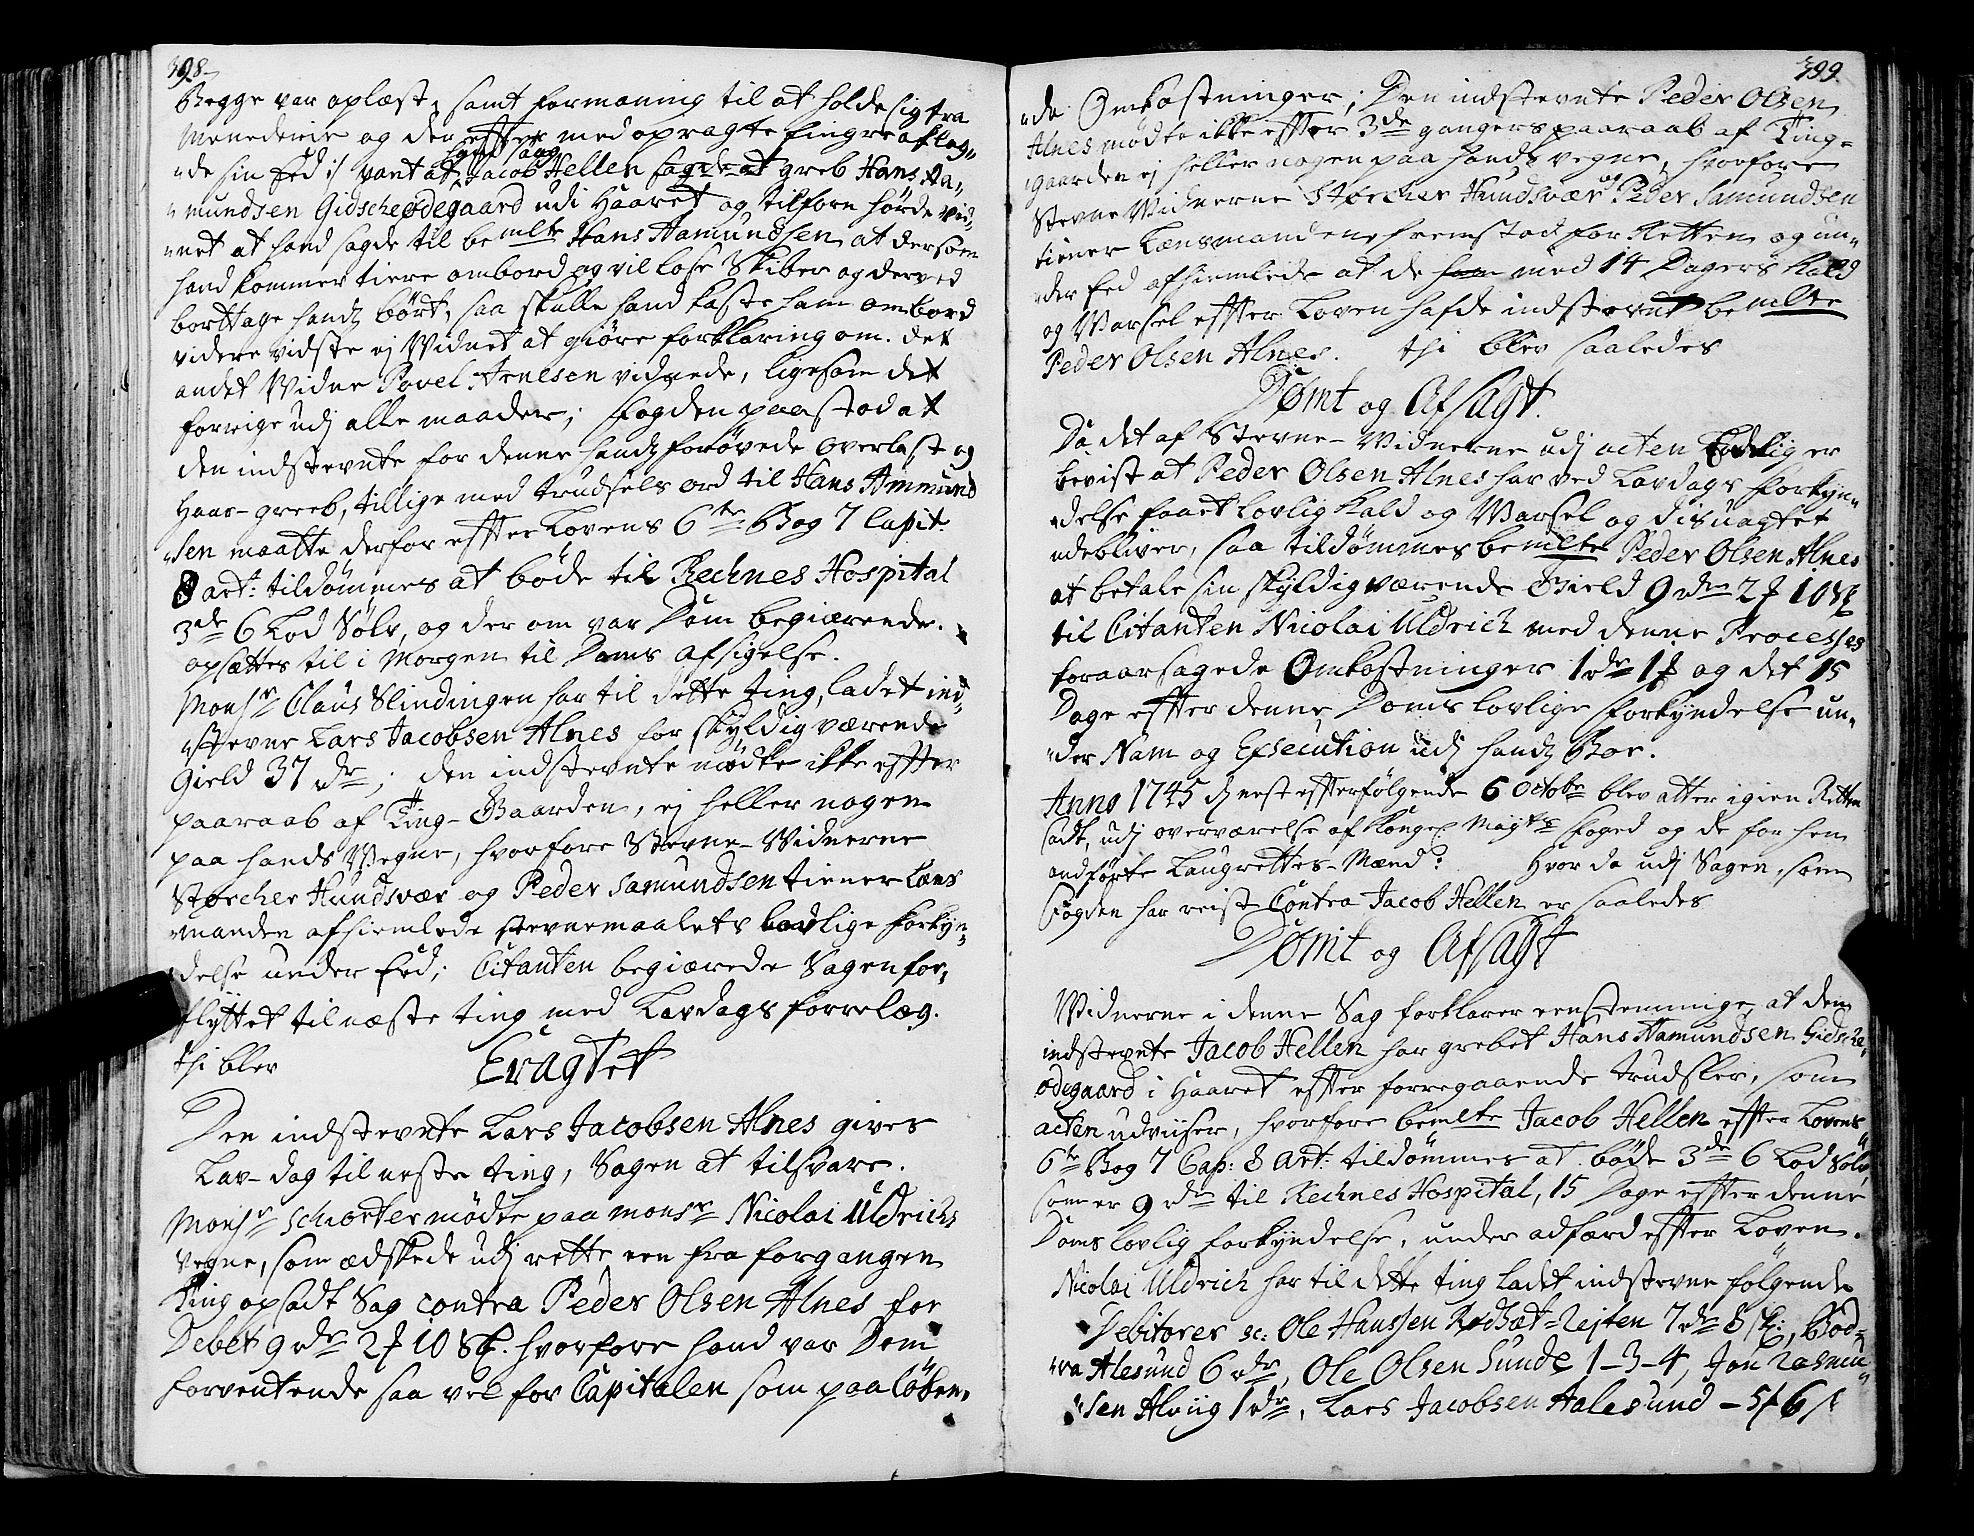 398
Begge var oplæst, samt formaning til at holde sig fra
Meenederie og der effter med opragte fingre aflag„
„de sin Eed :/ vant at hand saag Jacob Hellen sagde at greb Hans Aa„
„mundsen Gidscheødegaard udi Haaret og tilforn hørde vid„
„net at hand sagde til bemelte Hans Aamundsen at dersom
hand kommer tiere ombord og vil lose Skiber og derved
borttage hands børt, saa skulle hand kaste ham ombord
videre vidste ej Widnet at giøre forklaring om. det
andet Widne Povel Arnesen vidnede, ligesom det
forrige udj alle maader; Fogden paastod at
den indstevnte for denne hands forøvede overlast og
Haar-greeb, tillige med trudsels ord til Hans Ammund
„sen maatte derfor effter Lovens 6te Bog 7 Capit
8 art: tildømmes at bøde til Rechnes Hospital
3de 6 Lod Sølv, og der om var Dom begiærende.
opsættes til i Morgen til Doms afsigelse.
Monsr Claus Slindingen har til dette ting, ladet ind„
„stevne Lars Jacobsen Alnes for skyldig værende
Gield 37 rdr; den indstevnte mødte ikke effter
paaraab af Ting-Gaarden, ej heller nogen
paa hands Wegne, hvorfore Stevne-Widnerne
Størcher Hundsvær og Peder Samundsen tiener Lens
manden afhiemlede stevnemaalets lovlige forkyn„
„delse under Eed; Citanten begiærede Sagen for„
flyttet til næste ting med Lavdags forrelæg.
thi blev
Eragtet
Den indstevnte Lars Jacobsen Alnes gives
Lav-dag til neste ting, Sagen at tilsvare.
Monsr Schiorter mødte paa monsr Nicolai Uldrichs
vegne, som ædskede udj rette een fra forgangen
Ting opsadt Sag contra Peder Olsen Alnes for
Debet 9 rdr 2 ƒ 10 sk. hvorfore hand var Dom
forventende saa vel for Capitalen som paaløben„
399
„de Omkostninger; Den indstevnte Peder Olsen
Alnes mødte ikke effter 3de gangers paaraab af Ting-
gaarden ej heller nogen paa hands vegne, hvorfore
Stevne Widnerne Størcher Hundsvær og Peder Samundsen
tiener Lensmanden fremstod for Retten og un„
„der Eed afhiemlede at de ham med 14 Dagers Kald
og Warsel effter Loven hafde indstevnt bemelte
Peder Olsen Alnes. thi blev saaledes
Dømt og Afsagt.
Da det af Stevne-Widnerne udj acten Eedelig er
bevist at Peder Olsen Alnes har ved Lavdags Forkyn„
„delse faaet Lovlig Kald og Warsel og disuagtet
udebliver, saa tildømmes bemelte Peder Olsen Alnes
at betale sin skyldigværende Gield 9 rdr 2 ƒ 10 sk
til Citanten Nicolai Uldrich med denne Processes
foraarsagede Omkostninger 1 rdr 1 ƒ og det 15
Dage effter denne Doms lovlige Forkyndelse un„
„der Nam og Execution udj hands Boe.
Anno 1745 d nest effterfølgende 6 Octobr blev atter igien Retten
sadt, udj overværelse af Kongel Mayts Foged og de for hen
andførte Laugrettes-Mænd: Hvor da udj Sagen, som
Fogden har reist Contra Jacob Hellen er saaledes
Dømt og Afsagt
Widnerne i denne Sag forklarer eenstemmige, at den
indstevnte Jacob Hellen har grebet Hans Aamundsen Gidsche„
ødegaard i Haaret effter forregaaende trudsler, som
acten udviiser, hvorfore bemelte Jacob Hellen effter Lovens
6te Bog 7 Cap: 8 Art: tildømmes at bøde 3de 6 Lod Sølv
som er 9 rdr til Rechnes Hospital, 15 Dage effter denne
Doms lovlig forkyndelse, under adfærd effter Loven.
Nicolai Uldrich har til dette ting ladet indstevne følgende
Debitorer sc: Ole Hanssen 7 rdr 8 sk:, Bod-
„ra Alesund 6 rdr, Ole Olsen Sunde 1-3-4, Jon Rasmu„
„sen Alviig 1 rdr, Lars Jacobsen Aalesund - 5 ƒ 6 s